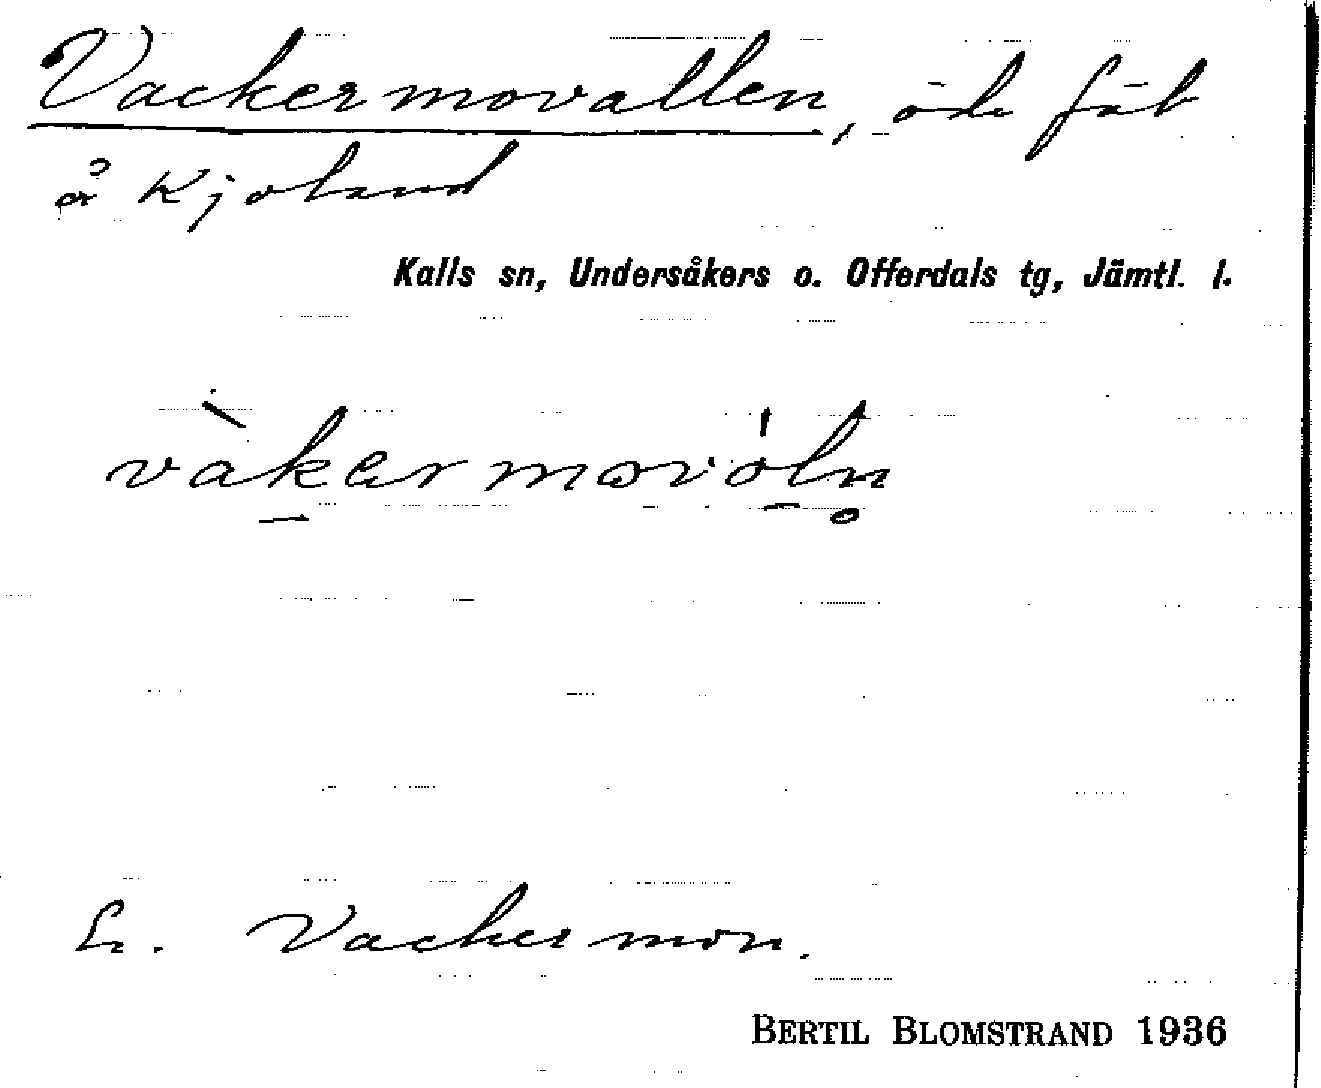 Vackermovallen, öde fäb
å Kjoland
Kalls sn, Undersåkers o. Offerdals tg, Jämtl. l.
vàkermovöln
Vackermon.
BERTIL BLOMSTRAND 1936